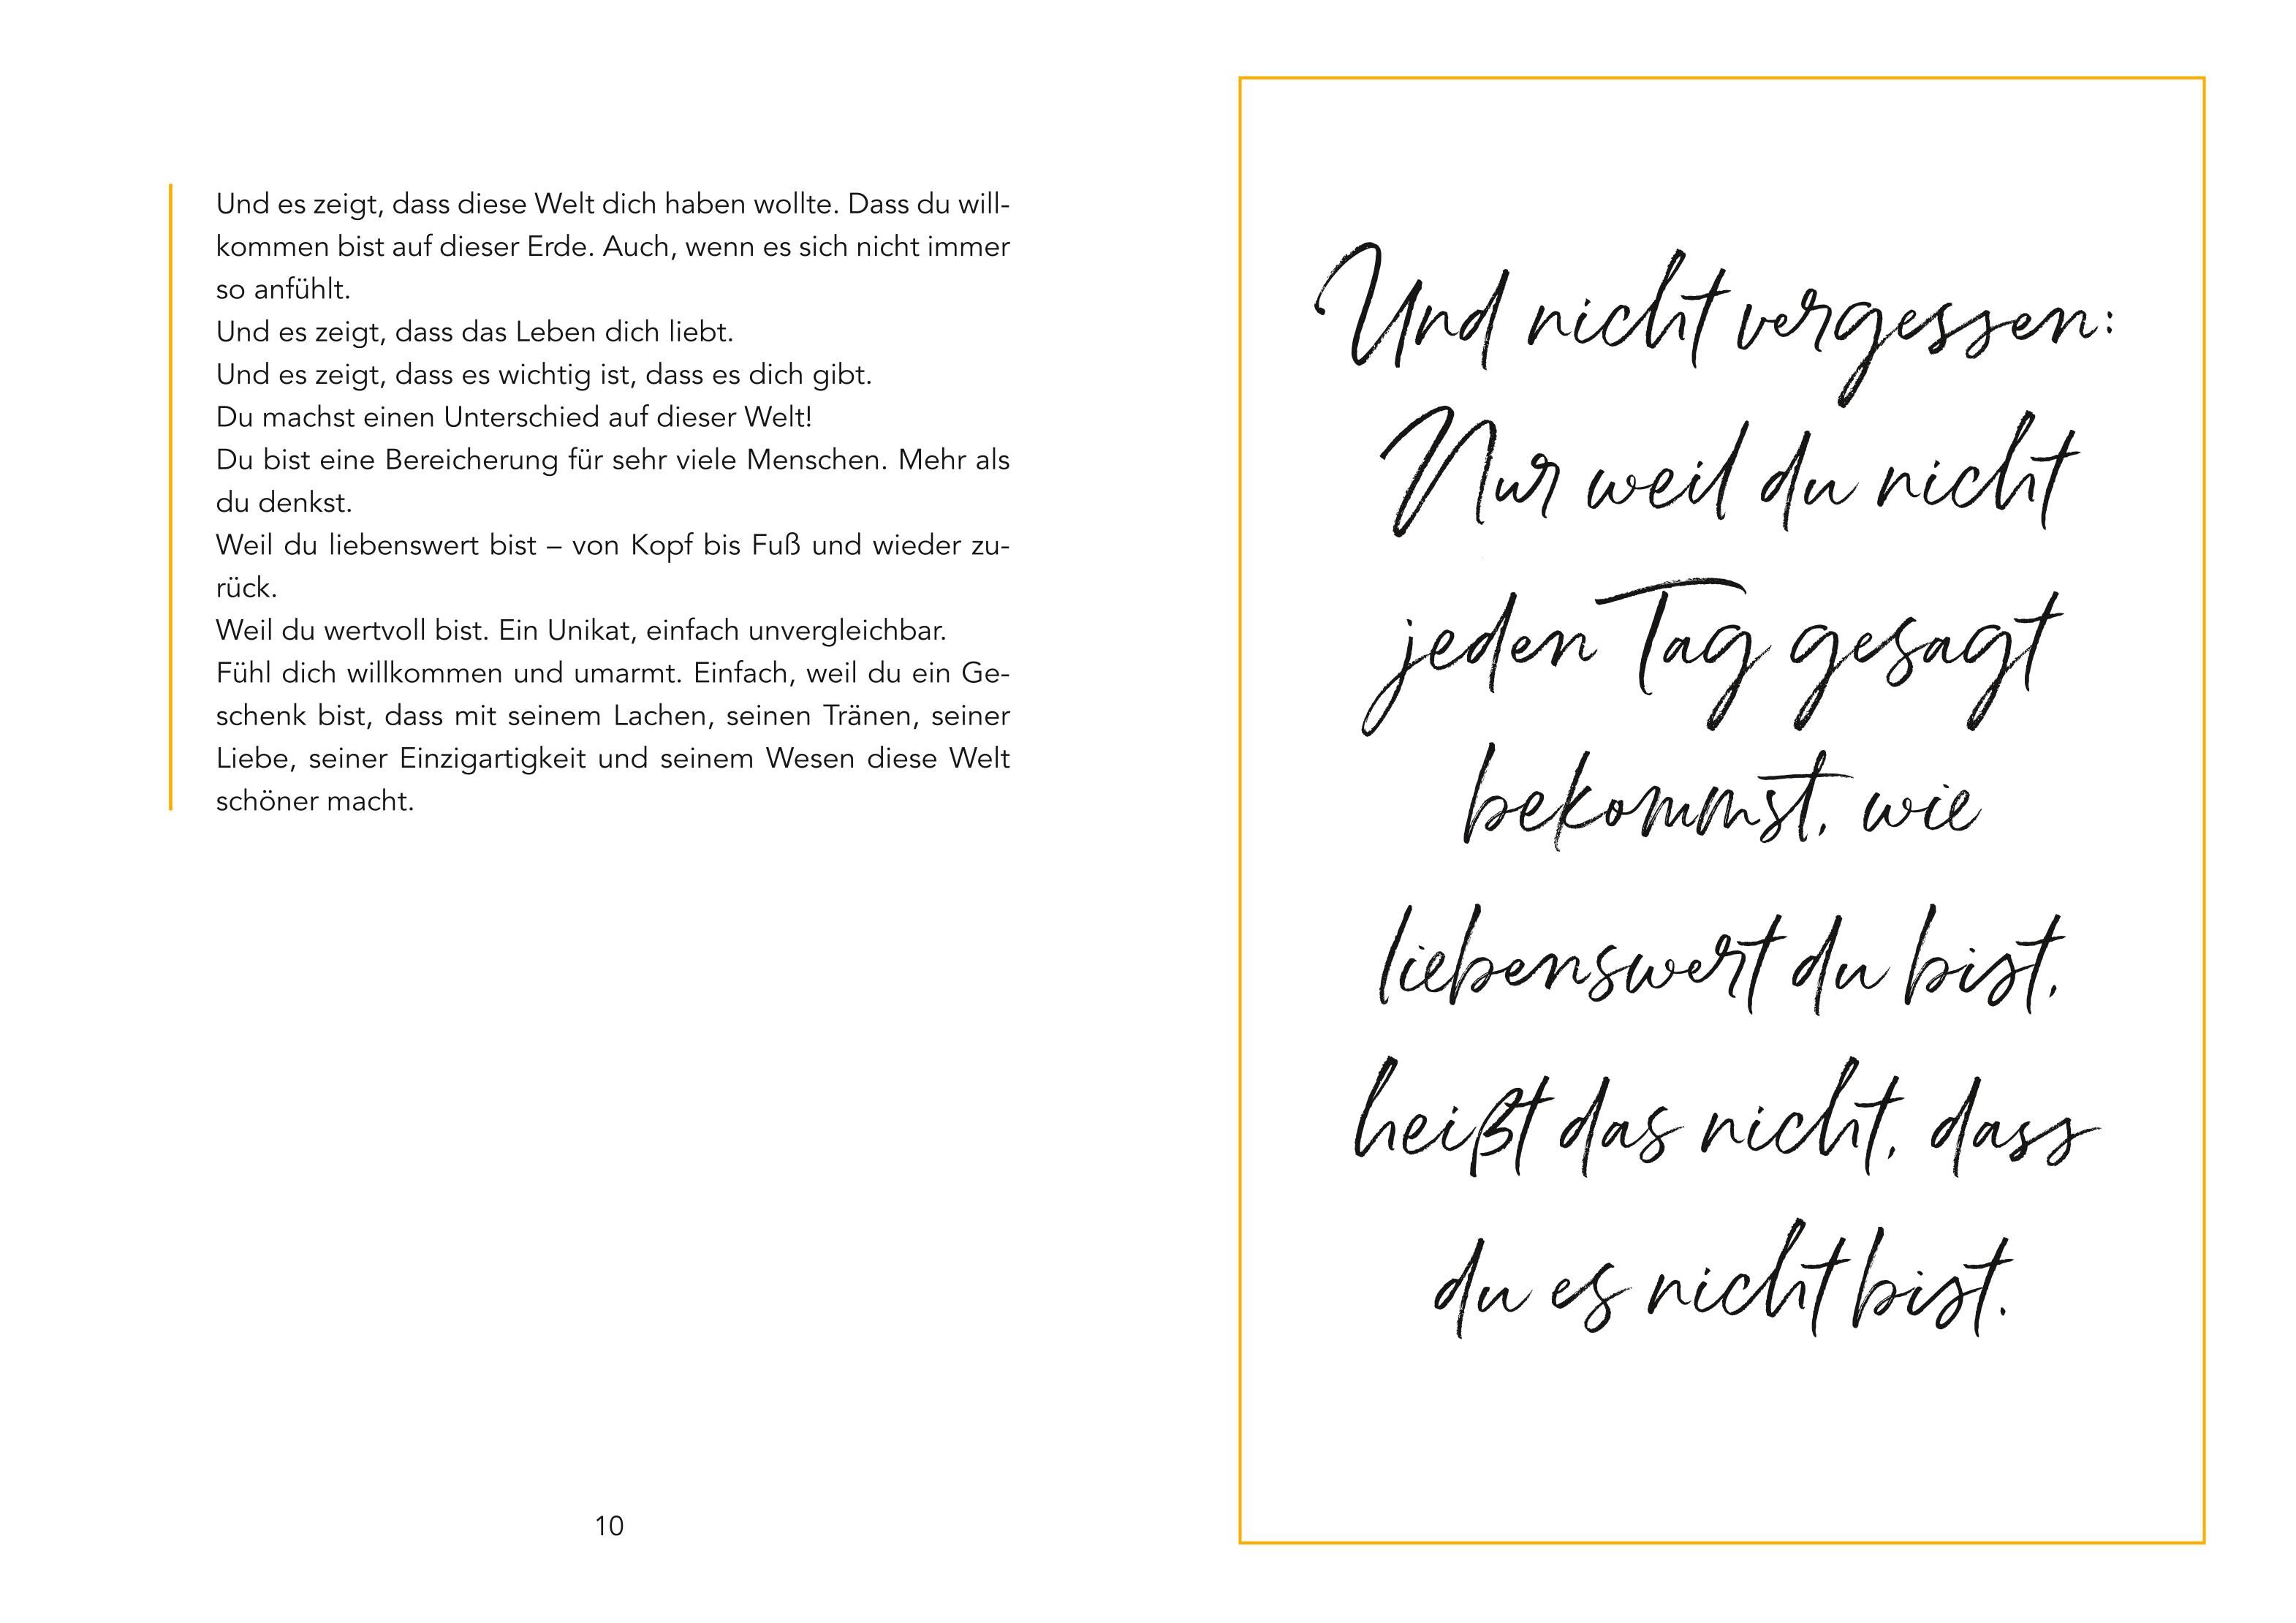 Und es zeigt, dass diese Welt dich haben wollte. Dass du will-
kommen bist auf dieser Erde. Auch, wenn es sich nicht immer
so anfühlt.
Und es zeigt, dass das Leben dich liebt.
Und es zeigt, dass es wichtig ist, dass es dich gibt.
Du machst einen Unterschied auf dieser Welt!
Du bist eine Bereicherung für sehr viele Menschen. Mehr als
du denkst.
Weil du liebenswert bist – von Kopf bis Fuß und wieder zu-
rück.
Weil du wertvoll bist. Ein Unikat, einfach unvergleichbar.
Fühl dich willkommen und umarmt. Einfach, weil du ein Ge-
schenk bist, dass mit seinem Lachen, seinen Tränen, seiner
Liebe, seiner Einzigartigkeit und seinem Wesen diese Welt
schöner macht.
10
Und nicht vergessen:
Nur weil du nicht
jeden Tag gesagt
bekommst, wie
liebenswert du bist,
heißt das nicht, dass
du es nicht bist.